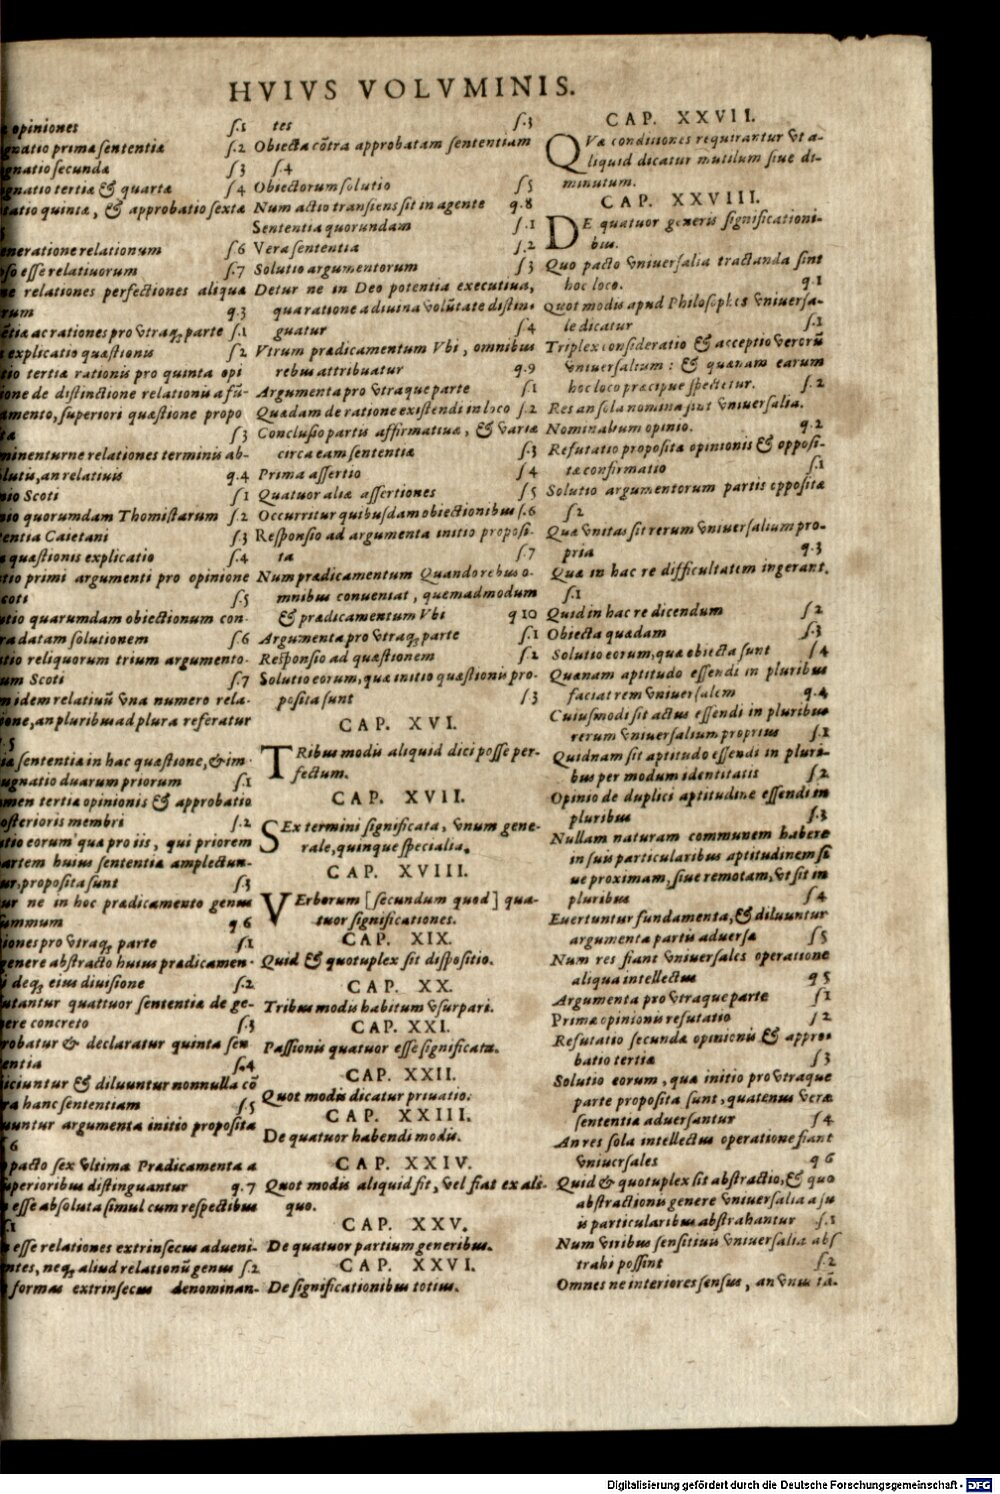 HVIVS VOLVMINIS.
opiniones ſ.1
gnatio primæ ſententiæ ſ.2
gnatio ſecundæ ſ3
gnatio tertiæ & quartæ ſ4
tatio quintæ, & approbatio ſextæ
5
eneratione relationum ſ.6
oſo eſſe relatiuorum ſ.7
ne relationes perfectiones aliqua
rum q.3
ẽtiæ ac rationes pro vtraq; parte ſ.1
explicatio quæſtionis ſ2
tio tertiæ rationis pro quinta opi
ione de diſtinctione relationis a fũ-
amento, ſuperiori quæſtione propo
tæ ſ3
minenturne relationes terminis ab-
lutis, an relatiuis q.4
nio Scoti ſ1
nio quorumdam Thomiſtarum ſ.2
entia Caietani ſ.3
quæſtionis explicatio ſ.4
tio primi argumenti pro opinione
coti ſ.5
utio quarumdam obiectionum con-
ra datam ſolutionem ſ.6
tio reliquorum trium argumento-
um Scoti ſ.7
n idem relatiuũ vna numero rela-
ione, an pluribus ad plura referatur
.5
iæ ſententiæ in hac quæſtione, & im-
ugnatio duarum priorum ſ.1
men tertiæ opinionis & approbatio
oſterioris membri ſ.2
tio eorum quæ pro iis, qui priorem
artem huius ſententiæ amplectun-
ur, propoſita ſunt ſ3
ur ne in hoc prædicamento genus
ummum q.6
iones pro vtraq; parte ſ.1
genere abſtracto huius prædicamen-
i deq; eius diuiſione ſ.2
utantur quattuor ſententiæ de ge-
ere concreto ſ.3
robatur & declaratur quinta ſen
entia ſ.4
iiciuntur & diluuntur nonnulla cõ
ra hanc ſententiam ſ.5
uuntur argumenta initio propoſita
6
pacto ſex vltima Prædicamenta a
uperioribus diſtinguantur q.7
eſſe abſoluta ſimul cum reſpectibus
ſ1
eſſe relationes extrinſecus adueni-
ntes, neq; aliud relationũ genus ſ.2
formas extrinſecus denominan-
tes ſ.3
Obiecta cõtra approbatam ſententiam
ſ.4
Obiectorum ſolutio ſ5
Num actio tranſiens ſit in agente q.8
Sententia quorundam ſ.1
Vera ſententia ſ.2
Solutio argumentorum ſ3
Detur ne in Deo potentia executiua,
quæ ratione a diuina volũtate diſtin-
guatur ſ4
Vtrum prædicamentum Vbi, omnibus
rebus attribuatur q.9
Argumenta pro vtraque parte ſ1
Quædam de ratione exiſtendi in loco ſ.2
Concluſio partis affirmatiuæ, & variæ
circa eam ſententiæ ſ.3
Prima aſſertio ſ4
Quatuor aliæ aſſertiones ſ5
Occurritur quibuſdam obiectionibus ſ.6
Reſponſio ad argumenta initio propoſi-
ta ſ.7
Num prædicamentum Quando rebus o-
mnibus conueniat, quemadmodum
& prædicamentum Vbi q 10
Argumenta pro vtraq; parte ſ.1
Reſponſio ad quæſtionem ſ.2
Solutio eorum, quæ initio quæſtionis pro-
poſita ſunt ſ3
CAP. XVI.
TRibus modis aliquid dici poſſe per-
fectum.
CAP. XVII.
SEx termini ſignificata, vnum gene-
rale, quinque ſpecialia.
CAP. XVIII.
VErborum [ſecundum quod] qua-
tuor ſignificationes.
CAP. XIX.
Quid & quotuplex ſit diſpoſitio.
CAP. XX.
Tribus modis habitum vſurpari.
CAP. XXI.
Paſſionis quatuor eſſe ſignificata.
CAP. XXII.
Quot modis dicatur priuatio.
CAP. XXIII.
De quatuor habendi modis.
CAP. XXIV.
Quot modis aliquid fit, vel fiat ex ali-
quo.
CAP. XXV.
De quatuor partium generibus.
CAP. XXVI.
De ſignificationibus totius.
CAP. XXVII.
QVæ conditiones requirantur vt a-
liquid dicatur mutilum ſiue di-
minutum.
CAP. XXVIII.
DE quatuor generis ſignificationi-
bus.
Quo pacto vniuerſalia tractanda ſint
hoc loco. q.1
Quot modis apud Philoſophos vniuerſa-
le dicatur ſ.1
Triplex conſideratio & acceptio verorũ
vniuerſalium: & quænam earum
hoc loco præcipue ſpectetur. ſ.2
Res an ſola nomina ſint vniuerſalia.
Nominalium opinio. q.2
Refutatio propoſitæ opinionis & oppoſi-
tæ confirmatio ſ.1
Solutio argumentorum partis oppoſitæ
ſ2
Quæ vnitas ſit rerum vniuerſalium pro-
pria q.3
Quæ in hac re difficultatem ingerant.
ſ.1
Quid in hac re dicendum ſ2
Obiecta quædam ſ.3
Solutio eorum, quæ obiecta ſunt ſ4
Quænam aptitudo eſſendi in pluribus
faciat rem vniuerſalem q.4
Cuiuſmodi ſit actus eſſendi in pluribus
rerum vniuerſalium proprius ſ.1
Quidnam ſit aptitudo eſſendi in pluri-
bus per modum identitatis ſ2
Opinio de duplici aptitudine eſſendi in
pluribus ſ.3
Nullam naturam communem habere
in ſuis particularibus aptitudinem ſi
ue proximam, ſiue remotam, vt ſit in
pluribus ſ4
Euertuntur fundamenta, & diluuntur
argumenta partis aduerſæ ſ5
Num res fiant vniuerſales operatione
aliqua intellectus q5
Argumenta pro vtraque parte ſ1
Primæ opinionis refutatio ſ2
Refutatio ſecundæ opinionis & appro-
batio tertiæ ſ3
Solutio eorum, quæ initio pro vtraque
parte propoſita ſunt, quatenus veræ
ſententiæ aduerſantur ſ4
An res ſola intellectus operatione fiant
vniuerſales q6
Quid & quotuplex ſit abſtractio, & quo
abſtractionis genere vniuerſalia a ſu
is particularibus abſtrahantur ſ.1
Num viribus ſenſitiuis vniuerſalia abſ
trahi poſſint ſ.2
Omnes ne interiores ſenſus, an vnus tã-
Digitalisierung gefördert durch die Deutsche Forschungsgemeinschaft - DFG